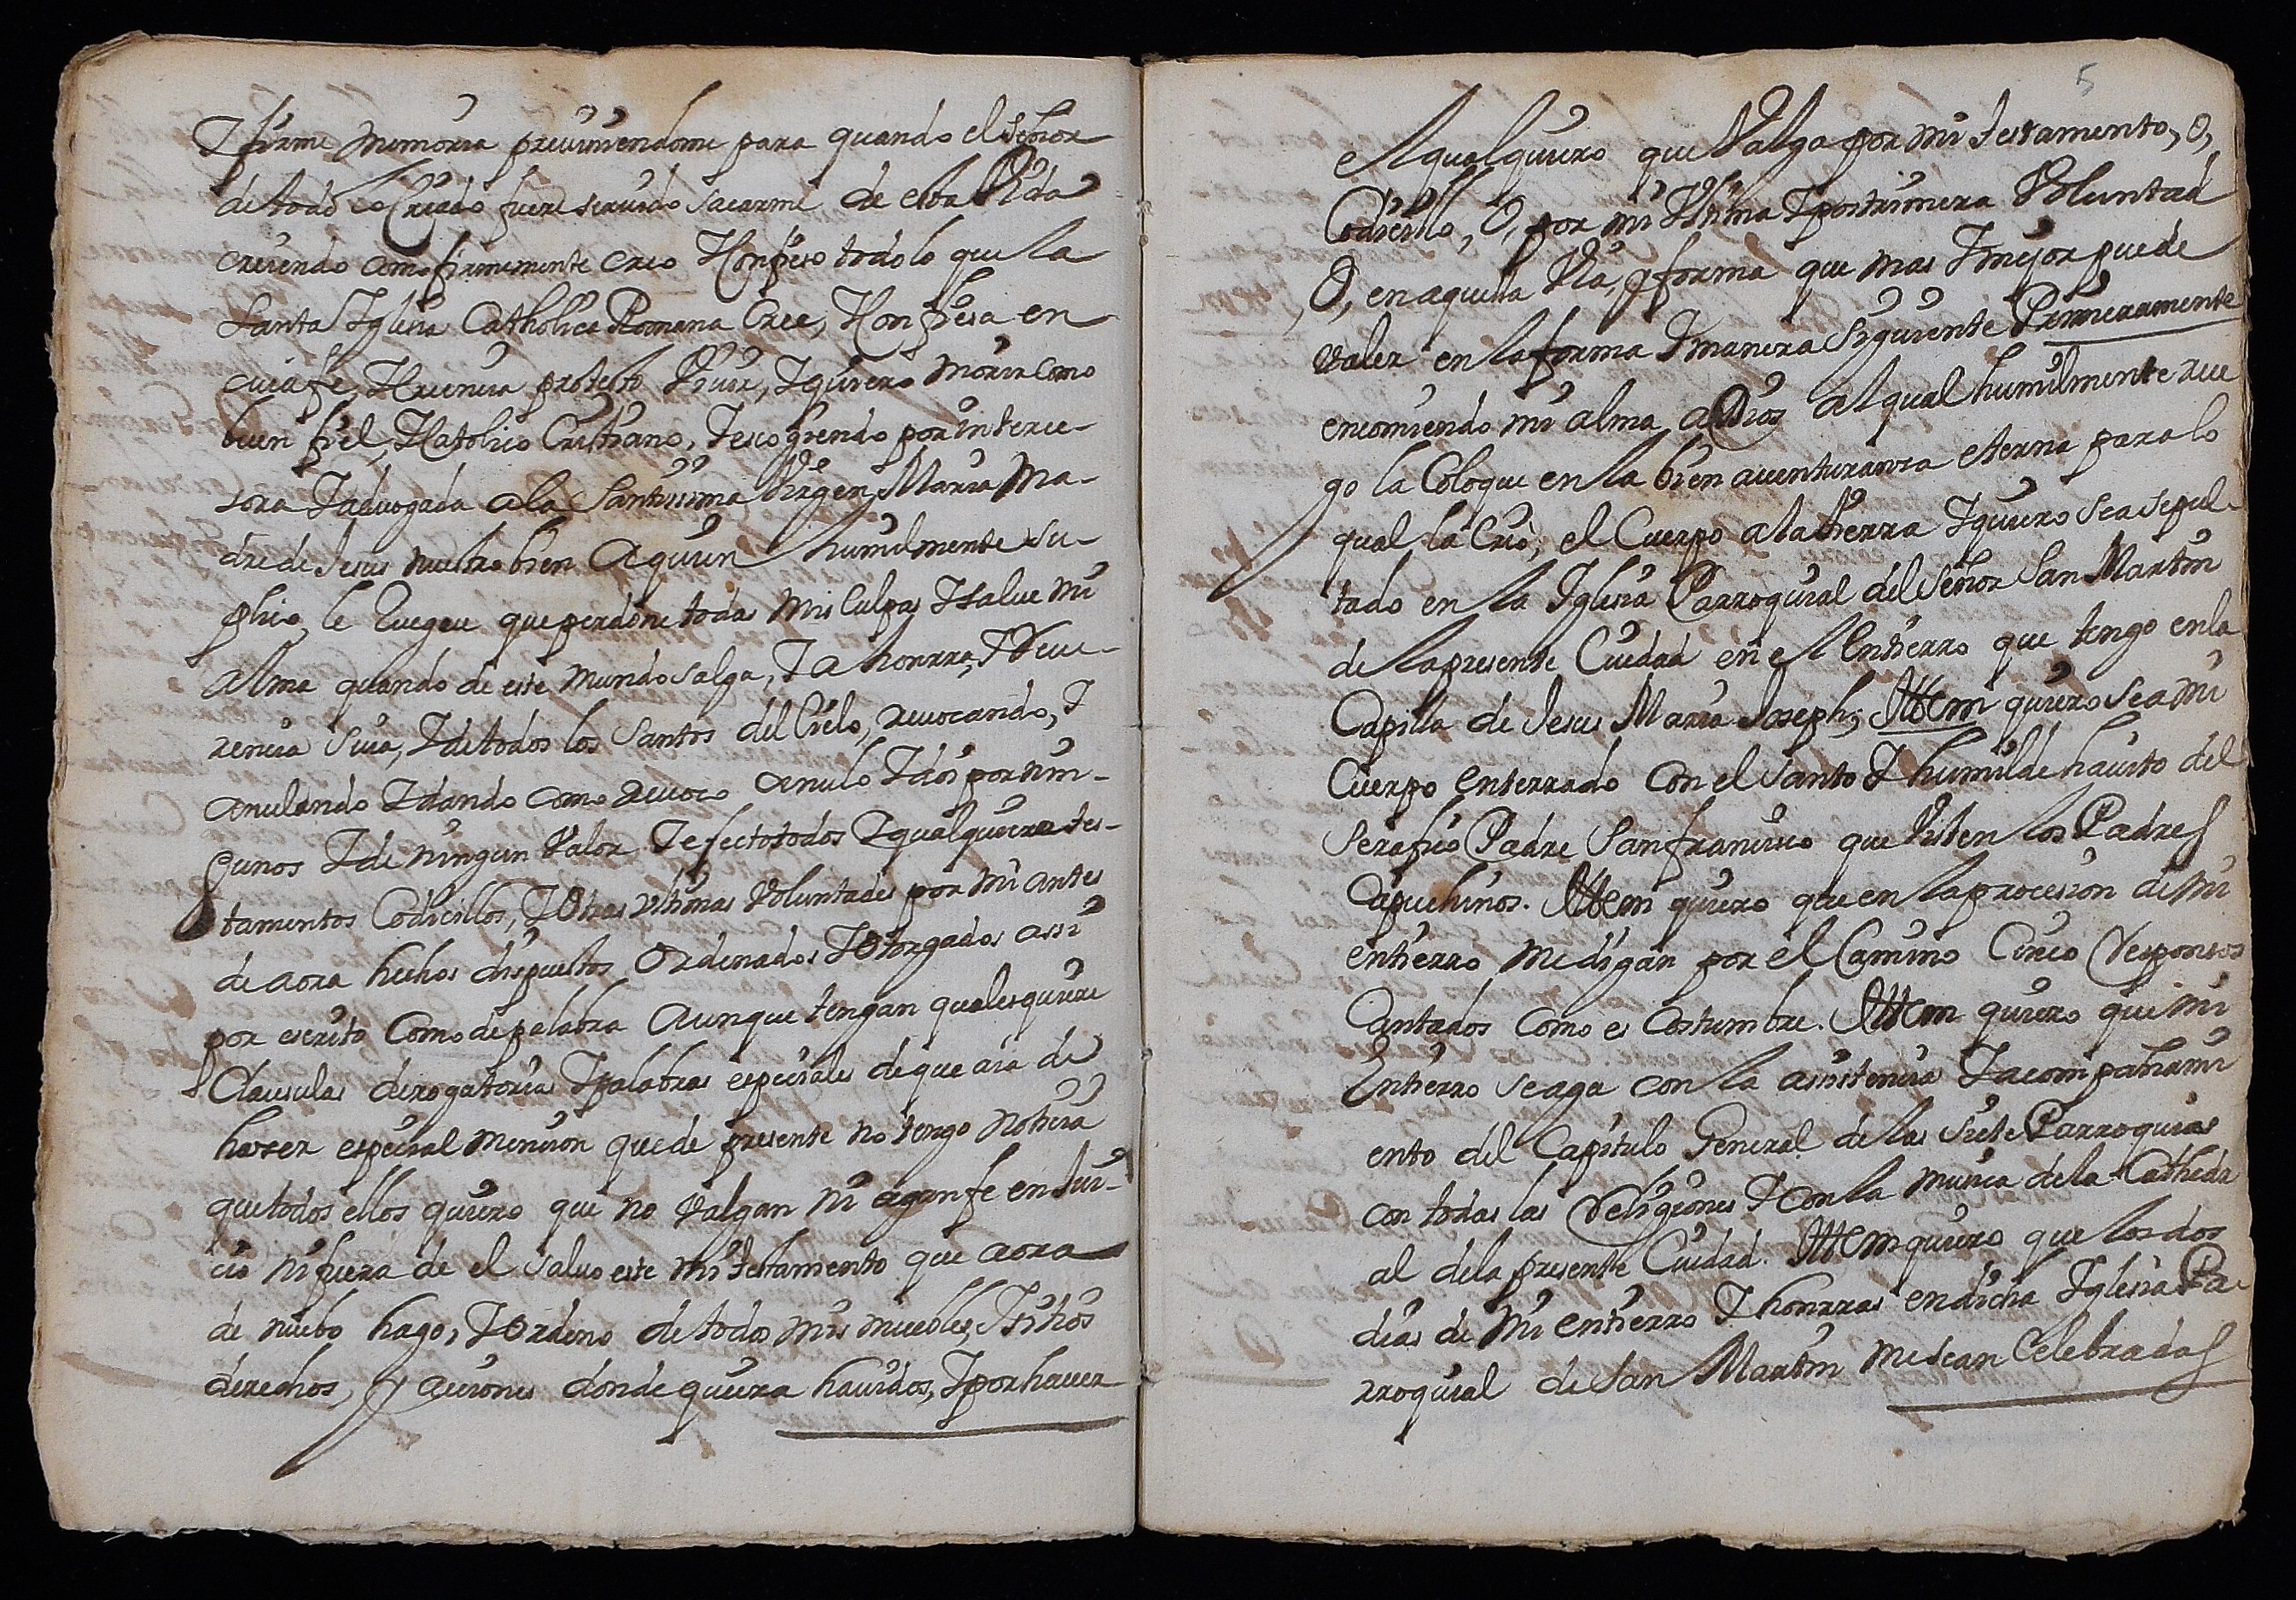 I firme memoria preuiniendome para quando el Señor
de todo lo Criado fuere seruido sacarme de esta Vida
creiendo como firmemente creo I Confieso todo lo que la
Santa Iglesia Catholica Romana Cree, I Confiesa en
cuia fe, I Creencia protesto Viuir, I quiero morir como
buen fiel, I Catolico Cristiano, I escogiendo por interce-
sora I aduogada a la Santissima Virgen, Maria Ma-
dre de Jesus nuestro bien A quien humilmente su-
plico, le Ruegue que perdone todas mis Culpas I salue mi
Alma quando de este mundo salga, I a honrra, I Reue-
rencia suia, I de todos los Santos del Cielo, reuocando, I
anulando I dando como reuoco anulo I dos por nin-
gunos I de ningun Valor I efecto todos I qualquiere tes-
tamentos Codicillos, I Otras ultimas Voluntades por mi antes
de aora hechos dispuestos Ordenados I Otorgados assi
por escrito Como de palabra Aunque tengan qualesquiere
Clausulas derogatorias I palabras especiales de que aia de
hazer especial mencion que de presente no tengo noticia
que todos ellos quiero que no valgan ni agan fe en Jui-
cio ni fuera de el saluo este mi testamento que aora
de nuebo hago, I Ordeno de todos mis muebles, I sitios
derechos, y acciones donde quiera hauidos, I por hauer
5
el qual quiero que Valga por mi testamento, O,
Codicillo, O, por mi Vltima I postrimera Voluntad
O, en aquella Via, I forma que mas I mejor puede
valer en la forma I manera Siguiente Primeramente
encomiendo mi alma a Dios al qual humilmente rue
go la Coloque en la bien auenturanza eterna para lo
qual la Crio, el Cuerpo a la tierra I quiero sea sepul-
tado en la Iglesia Parroquial del Señor San Martin
de la presente Ciudad en el Entierro que tengo en la
Capilla de Jesus Maria Joseph; Ittem quiero sea mi
Cuerpo enterrado con el santo I humilde hauito del
Serafico Padre San francisco que Visten los Padres
Capuchinos. Ittem quiero que en la procesion de mi
entierro me digan por el Camino Cinco Responsos
Cantados como es Costumbre. Ittem quiero que mi
Entierro se aga con la assistencia I acompañami
ento del Capitulo General de las siete Parroquias
con todas las Religiones I con la musica de la Cathedr
al de la presente Ciudad. Ittem quiero que los dos
dias de mi entierro I honrras en dicha Iglesia Pa-
rroquial de San Martin me sean Celebradas